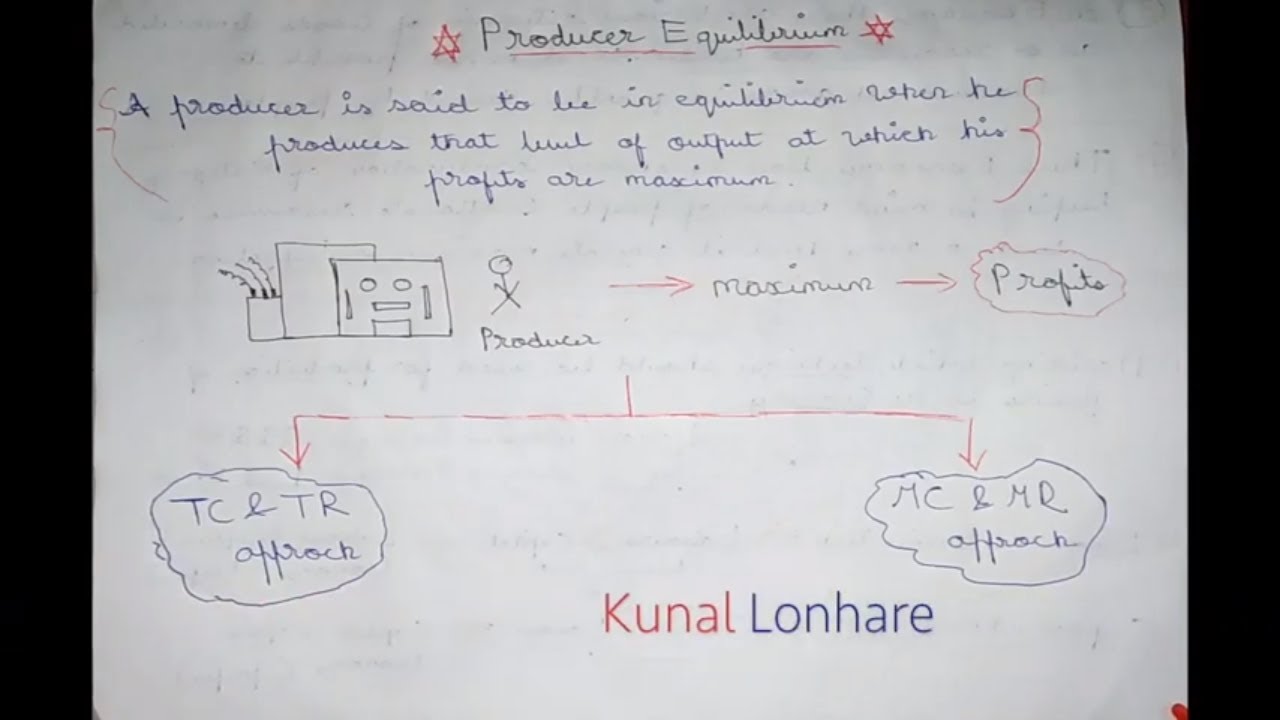 Producer Equilibrium
A producer is said to be in equilibrium when he
produces that level of output at which his
profits are maximum.
Producer → maximum → Profits
TC & TR
approch
MC & MR
approch
Kunal Lonhare